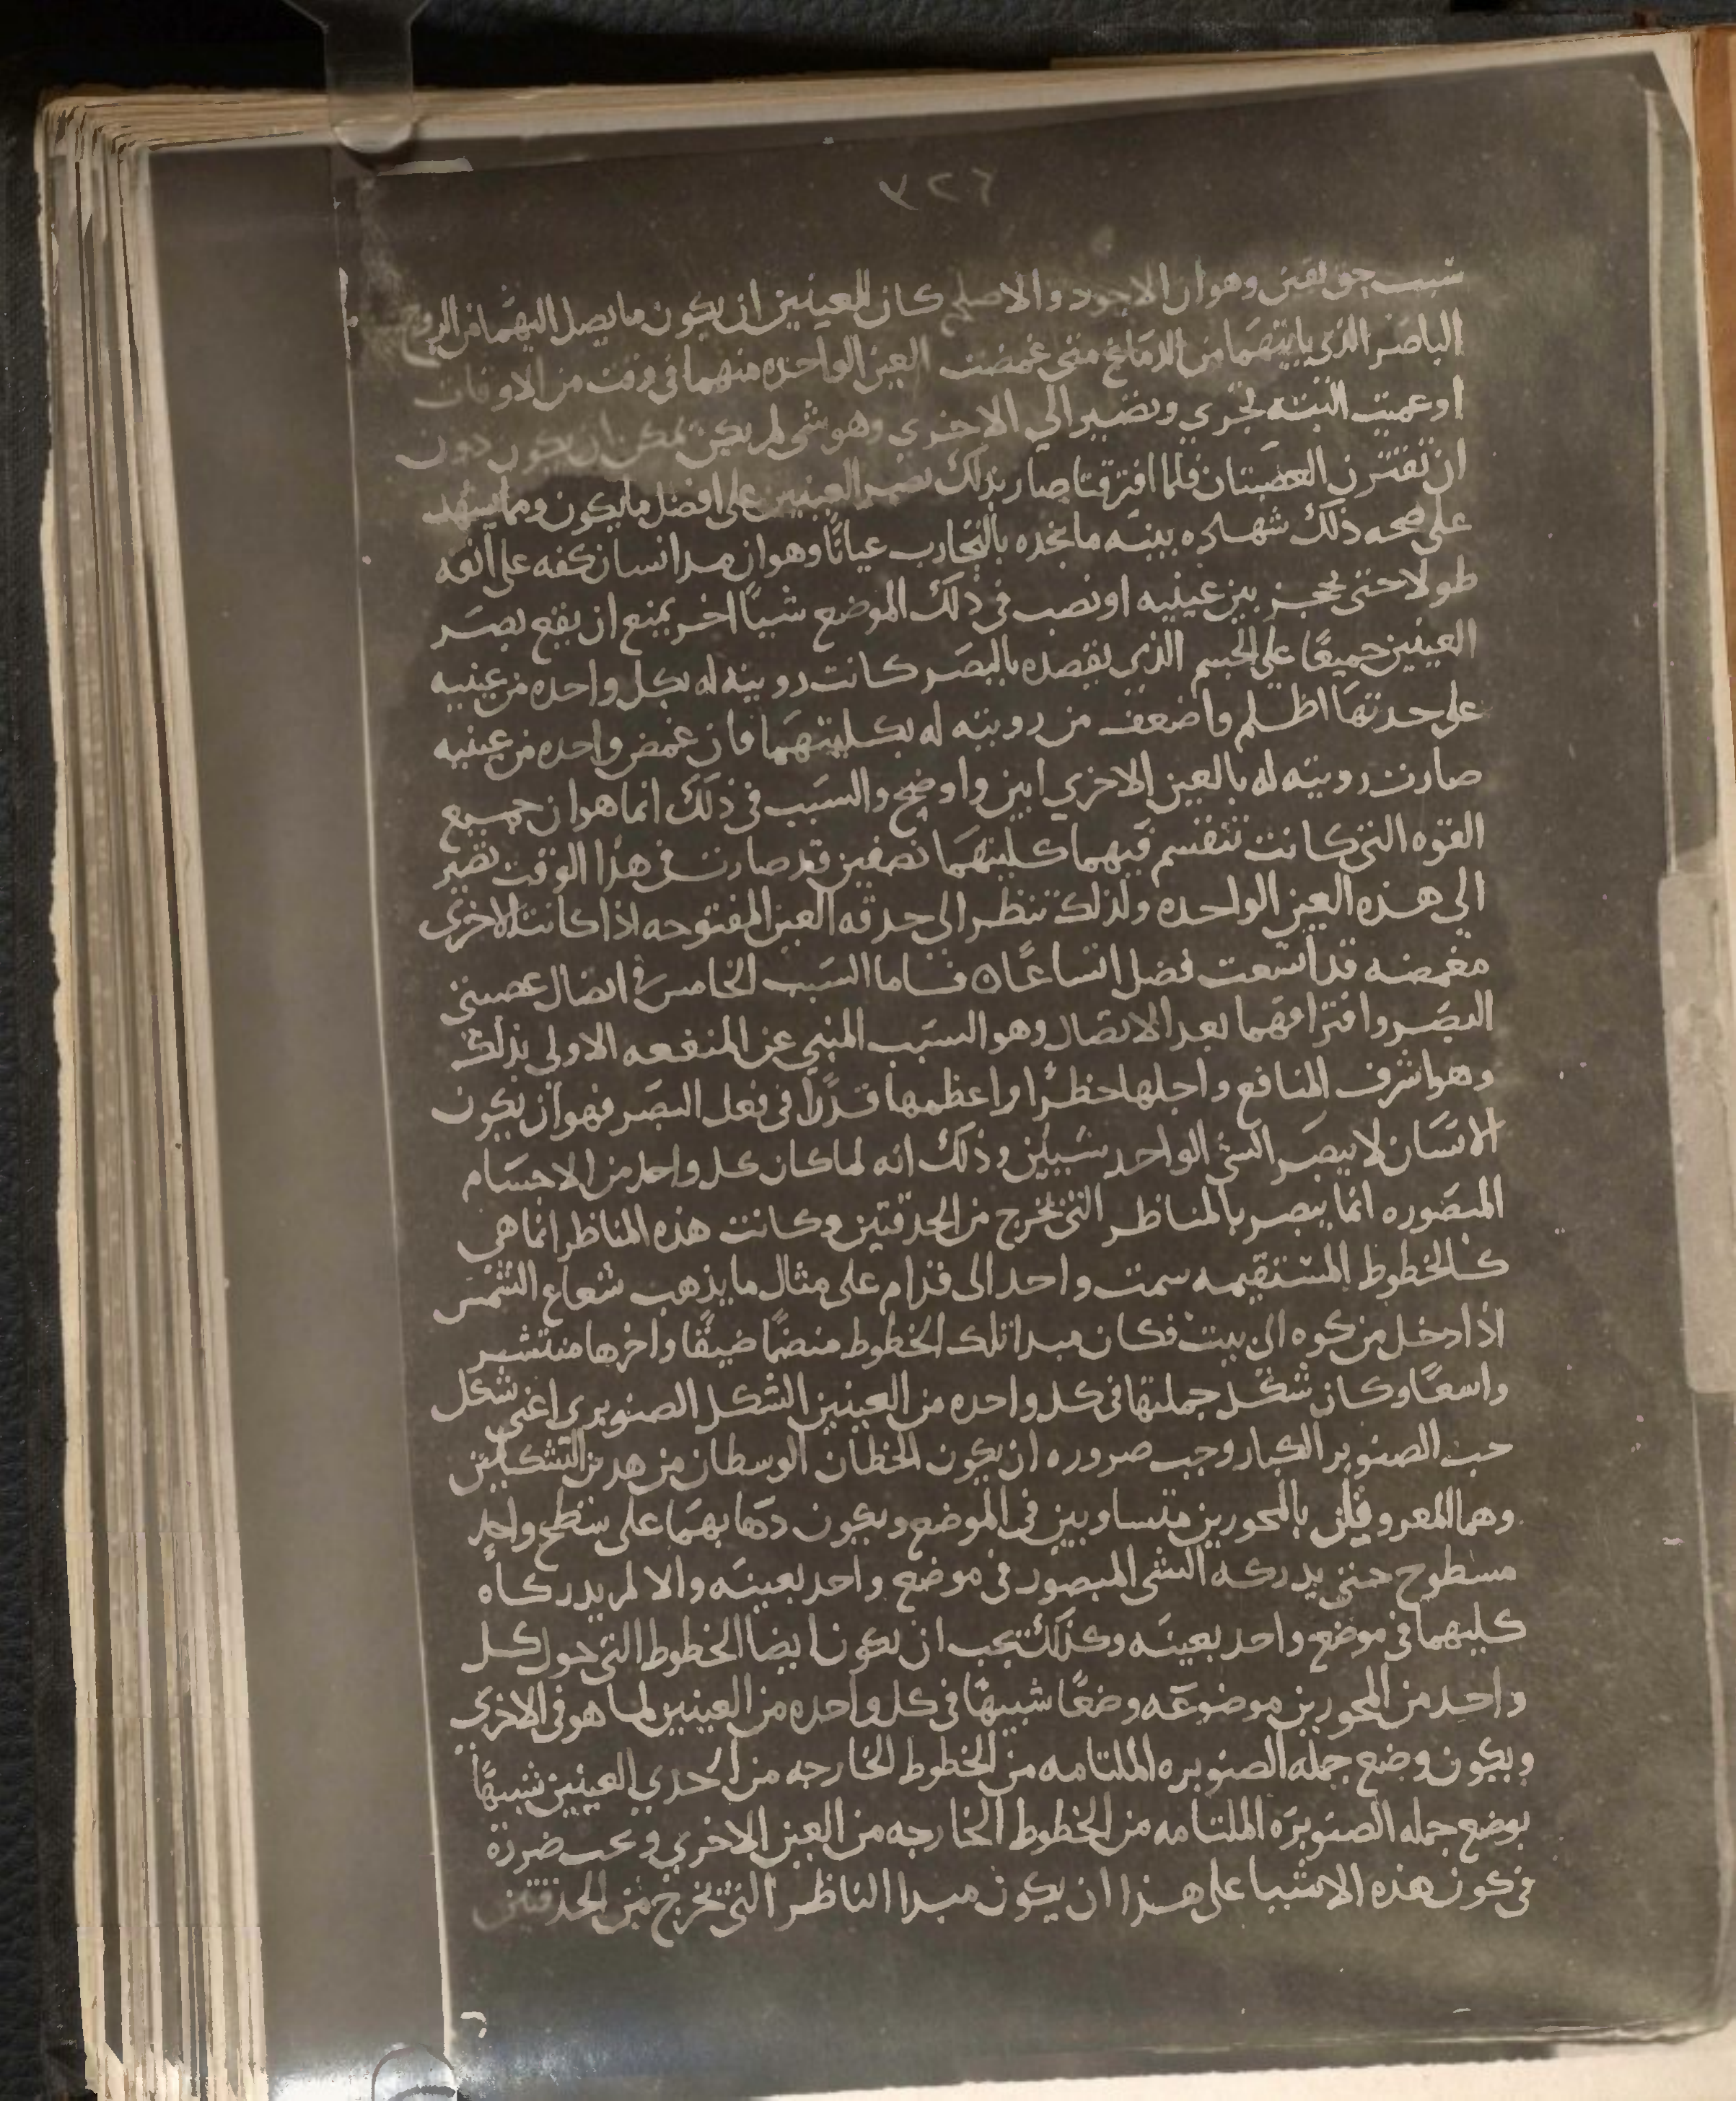 ٣٢٦
سبب حق يقين وهو ان الاجود والاصلح كان للعينين ان يكون ما يصل اليهما من الروح
الباصر الذي ياتيهما من الدماغ متى غمضت العين الواحده منهما في وقت من الاوقات
او عميت البته تجري وتصير الي الاخري وهو شي لم يكن يمكن ان يكون دون
ان تقترن العصبتان فلما افترقتا صار بذلك بصر العينين على افضل ما يكون ومما يشهد
على صحه ذلك شهاده بينه ما نجده بالتجارب عيانًا وهو ان مد انسان كفه على انفه
طولا حتى يحجز بين عينيه او نصب في ذلك الموضع شيئًا اخر يمنع ان يقع بصر
العينين جميعًا على الجسم الذي يقصده بالبصر كانت رويته له بكل واحده من عينيه
على حدتها اظلم واضعف من رويته له بكليتهما فان غمض واحده من عينيه
صارت رويته له بالعين الاخري ابين واوضح والسبب في ذلك انما هو ان جميع
القوه التي كانت تنقسم فيهما كليتهما نصفين قد صارت في هذا الوقت تصير
الي هذه العين الواحده ولذلك تنظر الي حدقه العين المفتوحه اذا كانت الاخرى
مغمضه قد اتسعت فضل اتساعًا ه فاما السبب الخامس في اتصال عصبتي
البصر وافتراقهما بعد الاتصال وهو السبب المنبي عن المنفعه الاولي بذلك
وهو اشرف المنافع واجلها خطرًا واعظمها قدرًا في فعل البصر فهو ان يكون
الانسان لا يبصر الشي الواحد شيئين وذلك انه لما كان كل واحد من الاجسام
المبصوره انما يبصر بالمناظر التي تخرج من الحدقتين وكانت هذه المناظر انما هي
كالخطوط المستقيمه سمت واحد الى قدام على مثال ما يذهب شعاع الشمس
اذا دخل من كوه الى بيت فكان مبدا تلك الخطوط منضمًا ضيقًا واخرها منتشر
واسعًا وكان شكل جملتها في كل واحده من العينين الشكل الصنوبري اعني شكل
حب الصنوبر الكبار وجب صروره ان يكون الخطان الوسطان من هدين الشكلين
وهما المعروفين بالمحورين متساويين في الموضع ويكون دهابهما على سطح واحد
مسطوح حتى يدركه الشي المبصور في موضع واحد بعينه والا لم يدركاه
كليهما في موضع واحد بعينه وكذلك يجب ان يكون ايضا الخطوط التي حول كل
واحد من المحورين موضوعه وضعًا شبيهًا في كل واحده من العينين لما هو في الاخري
ويكون وضع جمله الصنوبره الملتامه من الخطوط الخارجه من احدي العينين شبيهًا
بوضع جمله الصنوبره الملتامه من الخطوط الخارجه من العين الاخري ويجب ضرورة
في كون هذه الاشيا على هذا ان يكون مبدا الناظر التي تخرج من الحدقتين